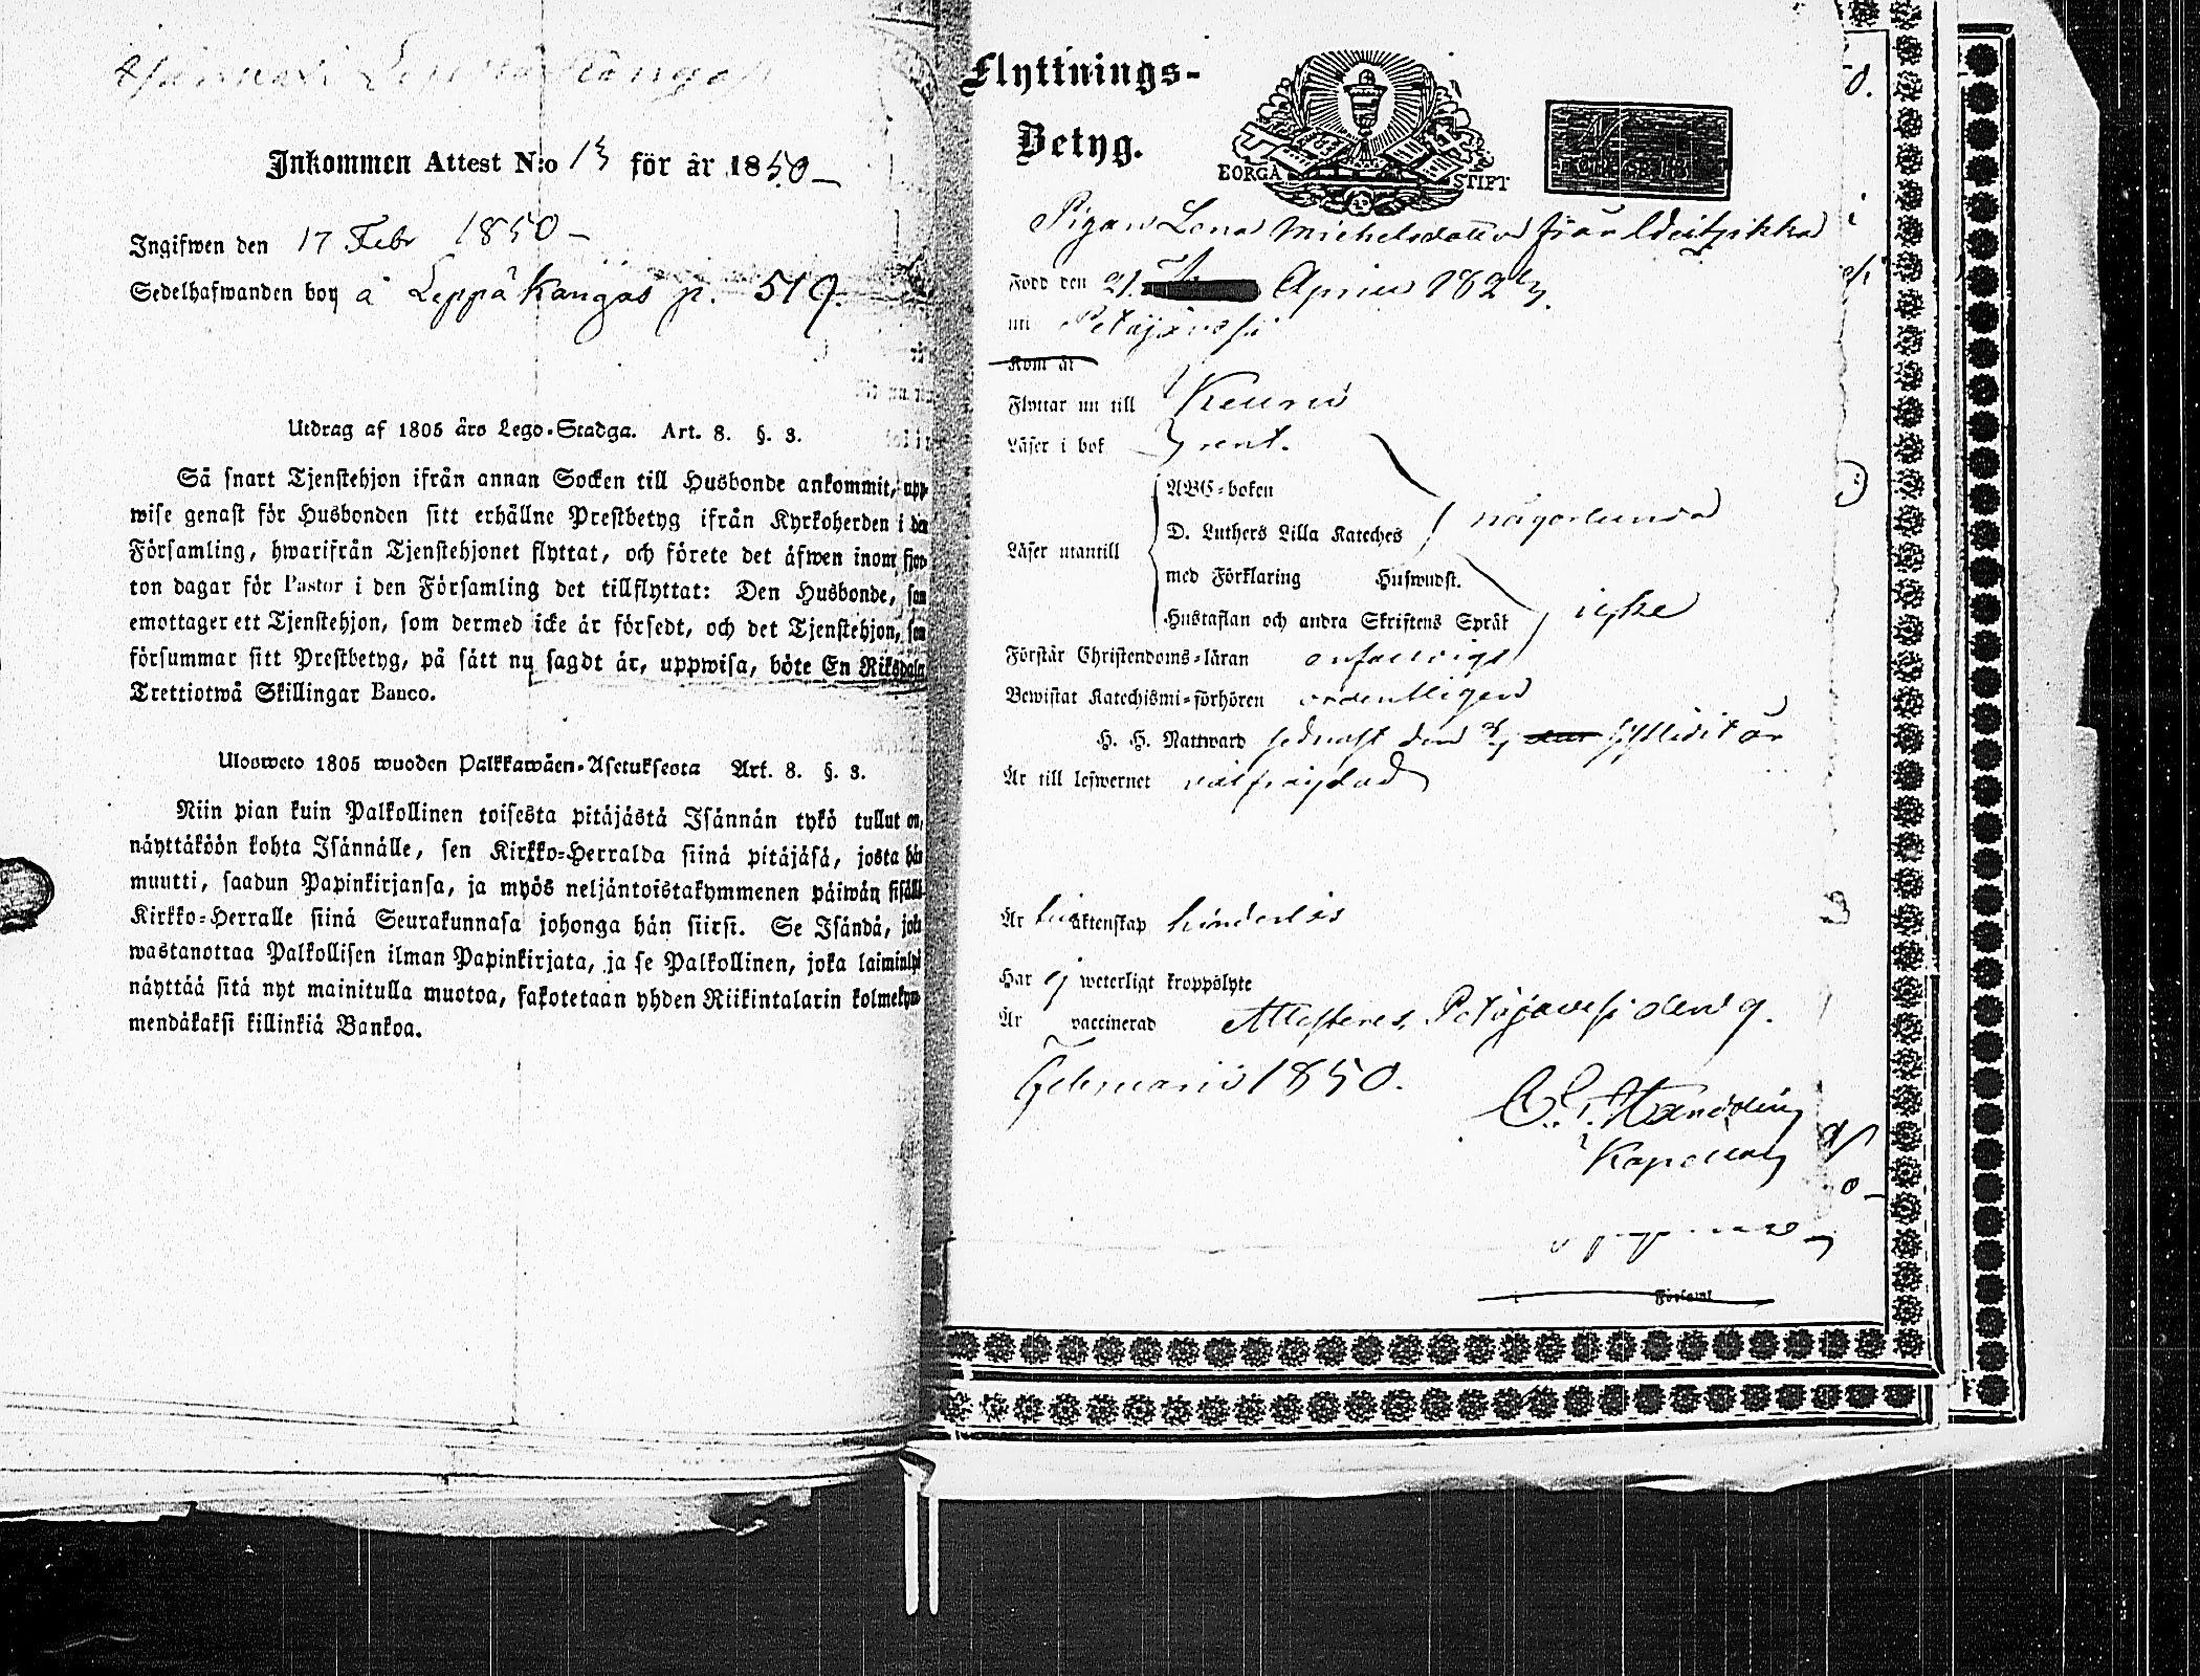 Inkommen Attest N:o 13 för år 1850 —
Ingifwen den 17 Febr 1850 —
Sedelhafwanden boy å Leppäkangas p. 519.
Utdrag af 1805 års Lego-Stadga. Art. 8. §. 3.
Så snart Tjenstehjon ifrån annan Socken till Husbonde ankommit, upp-
wise genast för Husbonden sitt erhållne Prestbetyg ifrån Kyrkoherden i den
Församling, hwarifrån Tjenstehjonet flyttat, och förete det äfwen inom fjor-
ton dagar för Pastor i den Församling det tillflyttat: Den Husbonde, som
emottager ett Tjenstehjon, som dermed icke är försedt, och det Tjenstehjon, som
försummar sitt Prestbetyg, på sätt nu sagdt är, uppwisa, böte En Riksdaler
Trettiotwå Skillingar Banco.
Ulosweto 1805 wuoden Palkkawäen-Asetuksesta Art. 8. §. 3.
Niin pian kuin Palkollinen toisesta pitäjästä Isännän tykö tullut on,
näyttäköön kohta Isännälle, sen Kirkko-Herralda siinä pitäjäsä, josta hän
muutti, saadun Papinkirjansa, ja myös neljäntoistakymmenen päiwän sisällä
Kirkko-Herralle siinä Seurakunnasa johonga hän siirsi. Se Isändä, joka
wastanottaa Palkollisen ilman Papinkirjata, ja se Palkollinen, joka laiminlyö
näyttää sitä nyt mainitulla muotoa, sakotetaan yhden Riikintalarin kolmekym-
mendäkaksi killinkiä Bankoa.
Flyttnings-
Betyg.
BORGÅ STIFT
Pigan Lena Michelsdotter från
Född den 21. Aprill 182
uti Petäjävesi
Kom år
Flyttar nu till Keuru
Läser i bok rent.
Läser utantill
ABC-boken
D. Luthers Lilla Kateches någorlunda
med Förklaring Huswudst.
Hustaflan och andra Skriftens Språk icke
Förstår Christendoms-läran enfaldigt
Bewistat Katechismi-förhören ordentligen
H. H. Nattward sednast den
Är till lefwernet välfrägdad
Är till äktenskap hinderlös
Har ej weterligt kroppslyte
Är vaccinerad Attesteres, Petäjävesi den 9.
Februarii 1850.
Kapellan
Församl